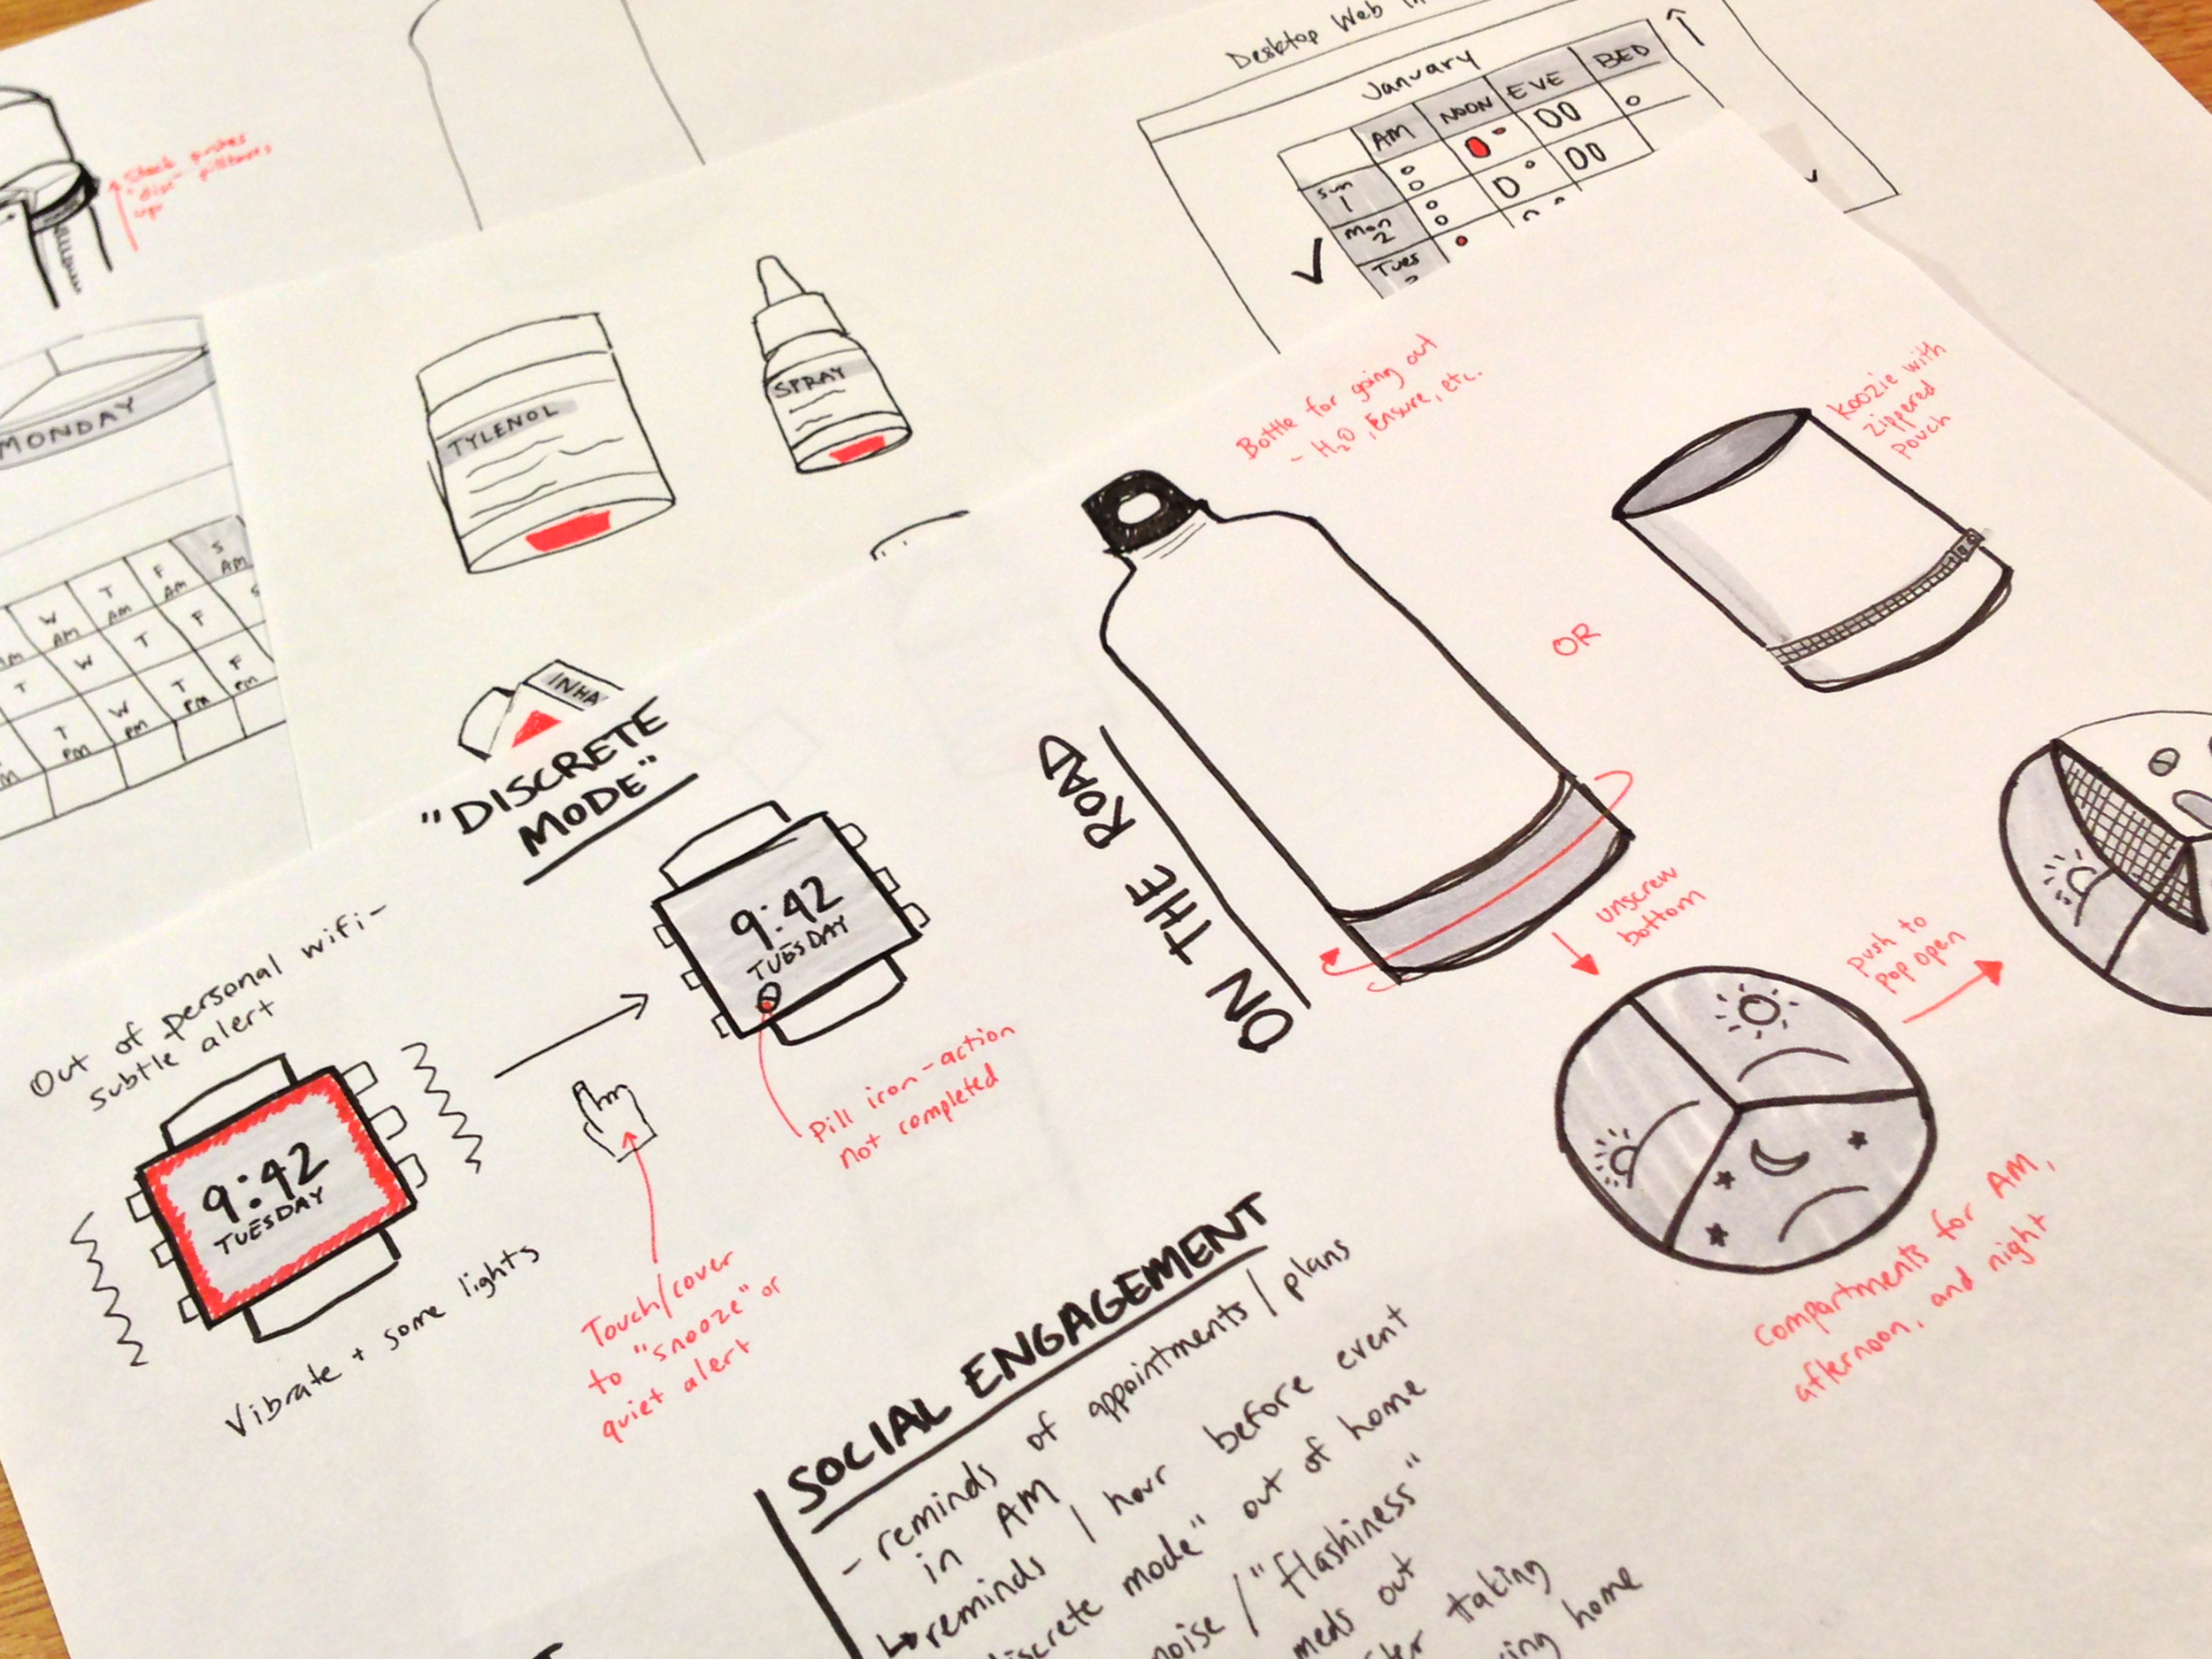 Desktop Web
January
AM NOON EVE BED
Sun
1
Mon
2
Tues
Stack pushes
"disc" pillboxes
up
MONDAY
S
AM
F
AM
T
AM
W
AM
AM
S
F
T
W
T
F
PM
T
PM
W
PM
T
PM
TYLENOL
SPRAY
INHA
Bottle for going out
- H₂O, Ensure, etc.
Koozie with
zippered
pouch
OR
ON THE ROAD
unscrew
bottom
push to
pop open
Compartments for AM,
afternoon, and night
"DISCRETE
MODE"
Out of personal wifi-
subtle alert
9:42
TUESDAY
Vibrate + some lights
9:42
TUESDAY
Pill iron-action
not completed
Touch/cover
to "snooze" or
quiet alert
SOCIAL ENGAGEMENT
- reminds of appointments/plans
in AM
↳ reminds 1 hour before event
discrete mode" out of home
noise/"flashiness"
meds out
taking
home